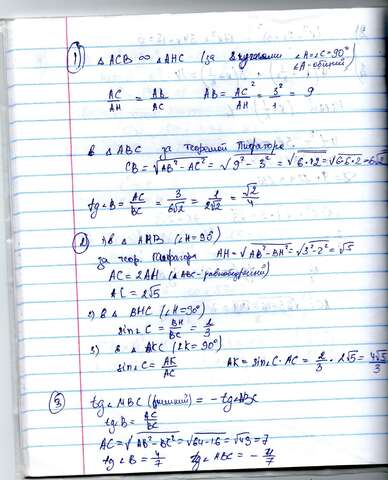 1) △ ACB ∞ △ AHC (за 2 кутами ∠H=∠C=90° ∠A-спільний)
AC/AH = AB/AC    AB = AC²/AH = 3²/1 = 9
в △ ABC за теоремой Пифагора
CB = √AB²-AC² = √9²-3² = √6·12 = √6·6·2 = 6√2
tg∠B = AC/BC = 3/6√2 = 1/2√2 = √2/4
2) 1) в △ AHB (∠H=90°)
за теор. Пифагора AH = √AB²-BH² = √3²-2² = √5
AC=2AH (△ABC-равнобедрений)
AC=2√5
2) в △ BHC (∠H=90°)
sin∠C = BH/BC = 2/3
3) в △ AKC (∠K=90°)
sin∠C = AK/AC    AK = sin∠C·AC = 2/3 · 2√5 = 4√5/3
3) tg∠ABC (внешний) = -tg∠ABC
tg∠B = AC/BC
AC = √AB²-BC² = √64-16 = √49 = 7
tg∠B = 4/7    tg∠ABC = -4/7